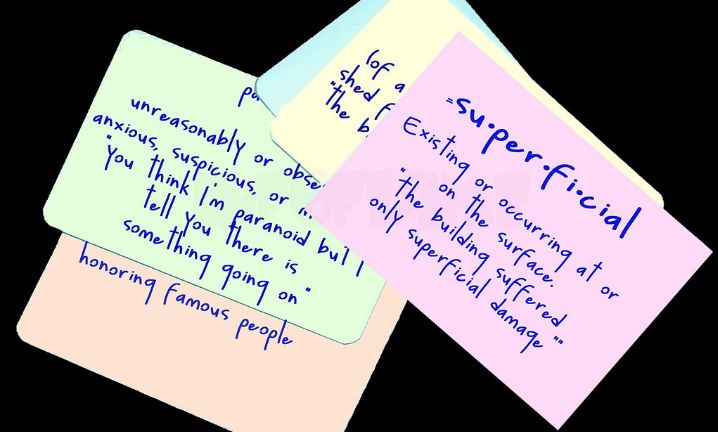 unreasonably or obse
anxious, suspicious, or
"You think I'm paranoid but I
tell you there is
something going on"
honoring famous people
(of a
shed f
"the b
=su·per·fi·cial
Existing or occurring at or
on the surface.
"the building suffered
only superficial damage""